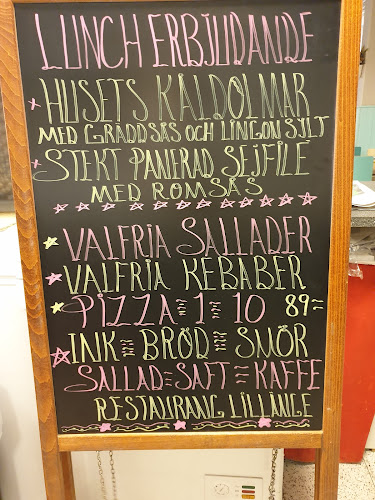 LUNCH ERBJUDANDE
HUSETS KALDOLMAR
MED GRÄDDSÅS OCH LINGON SYLT
STEKT PANERAD SEJFILE
MED ROMSÅS
VALFRIA SALLADER
VALFRIA KEBABER
PIZZA = 1 = 10 89=
INK = BRÖD = SMÖR
SALLAD = SAFT = KAFFE
RESTAURANG LILLÄNGE